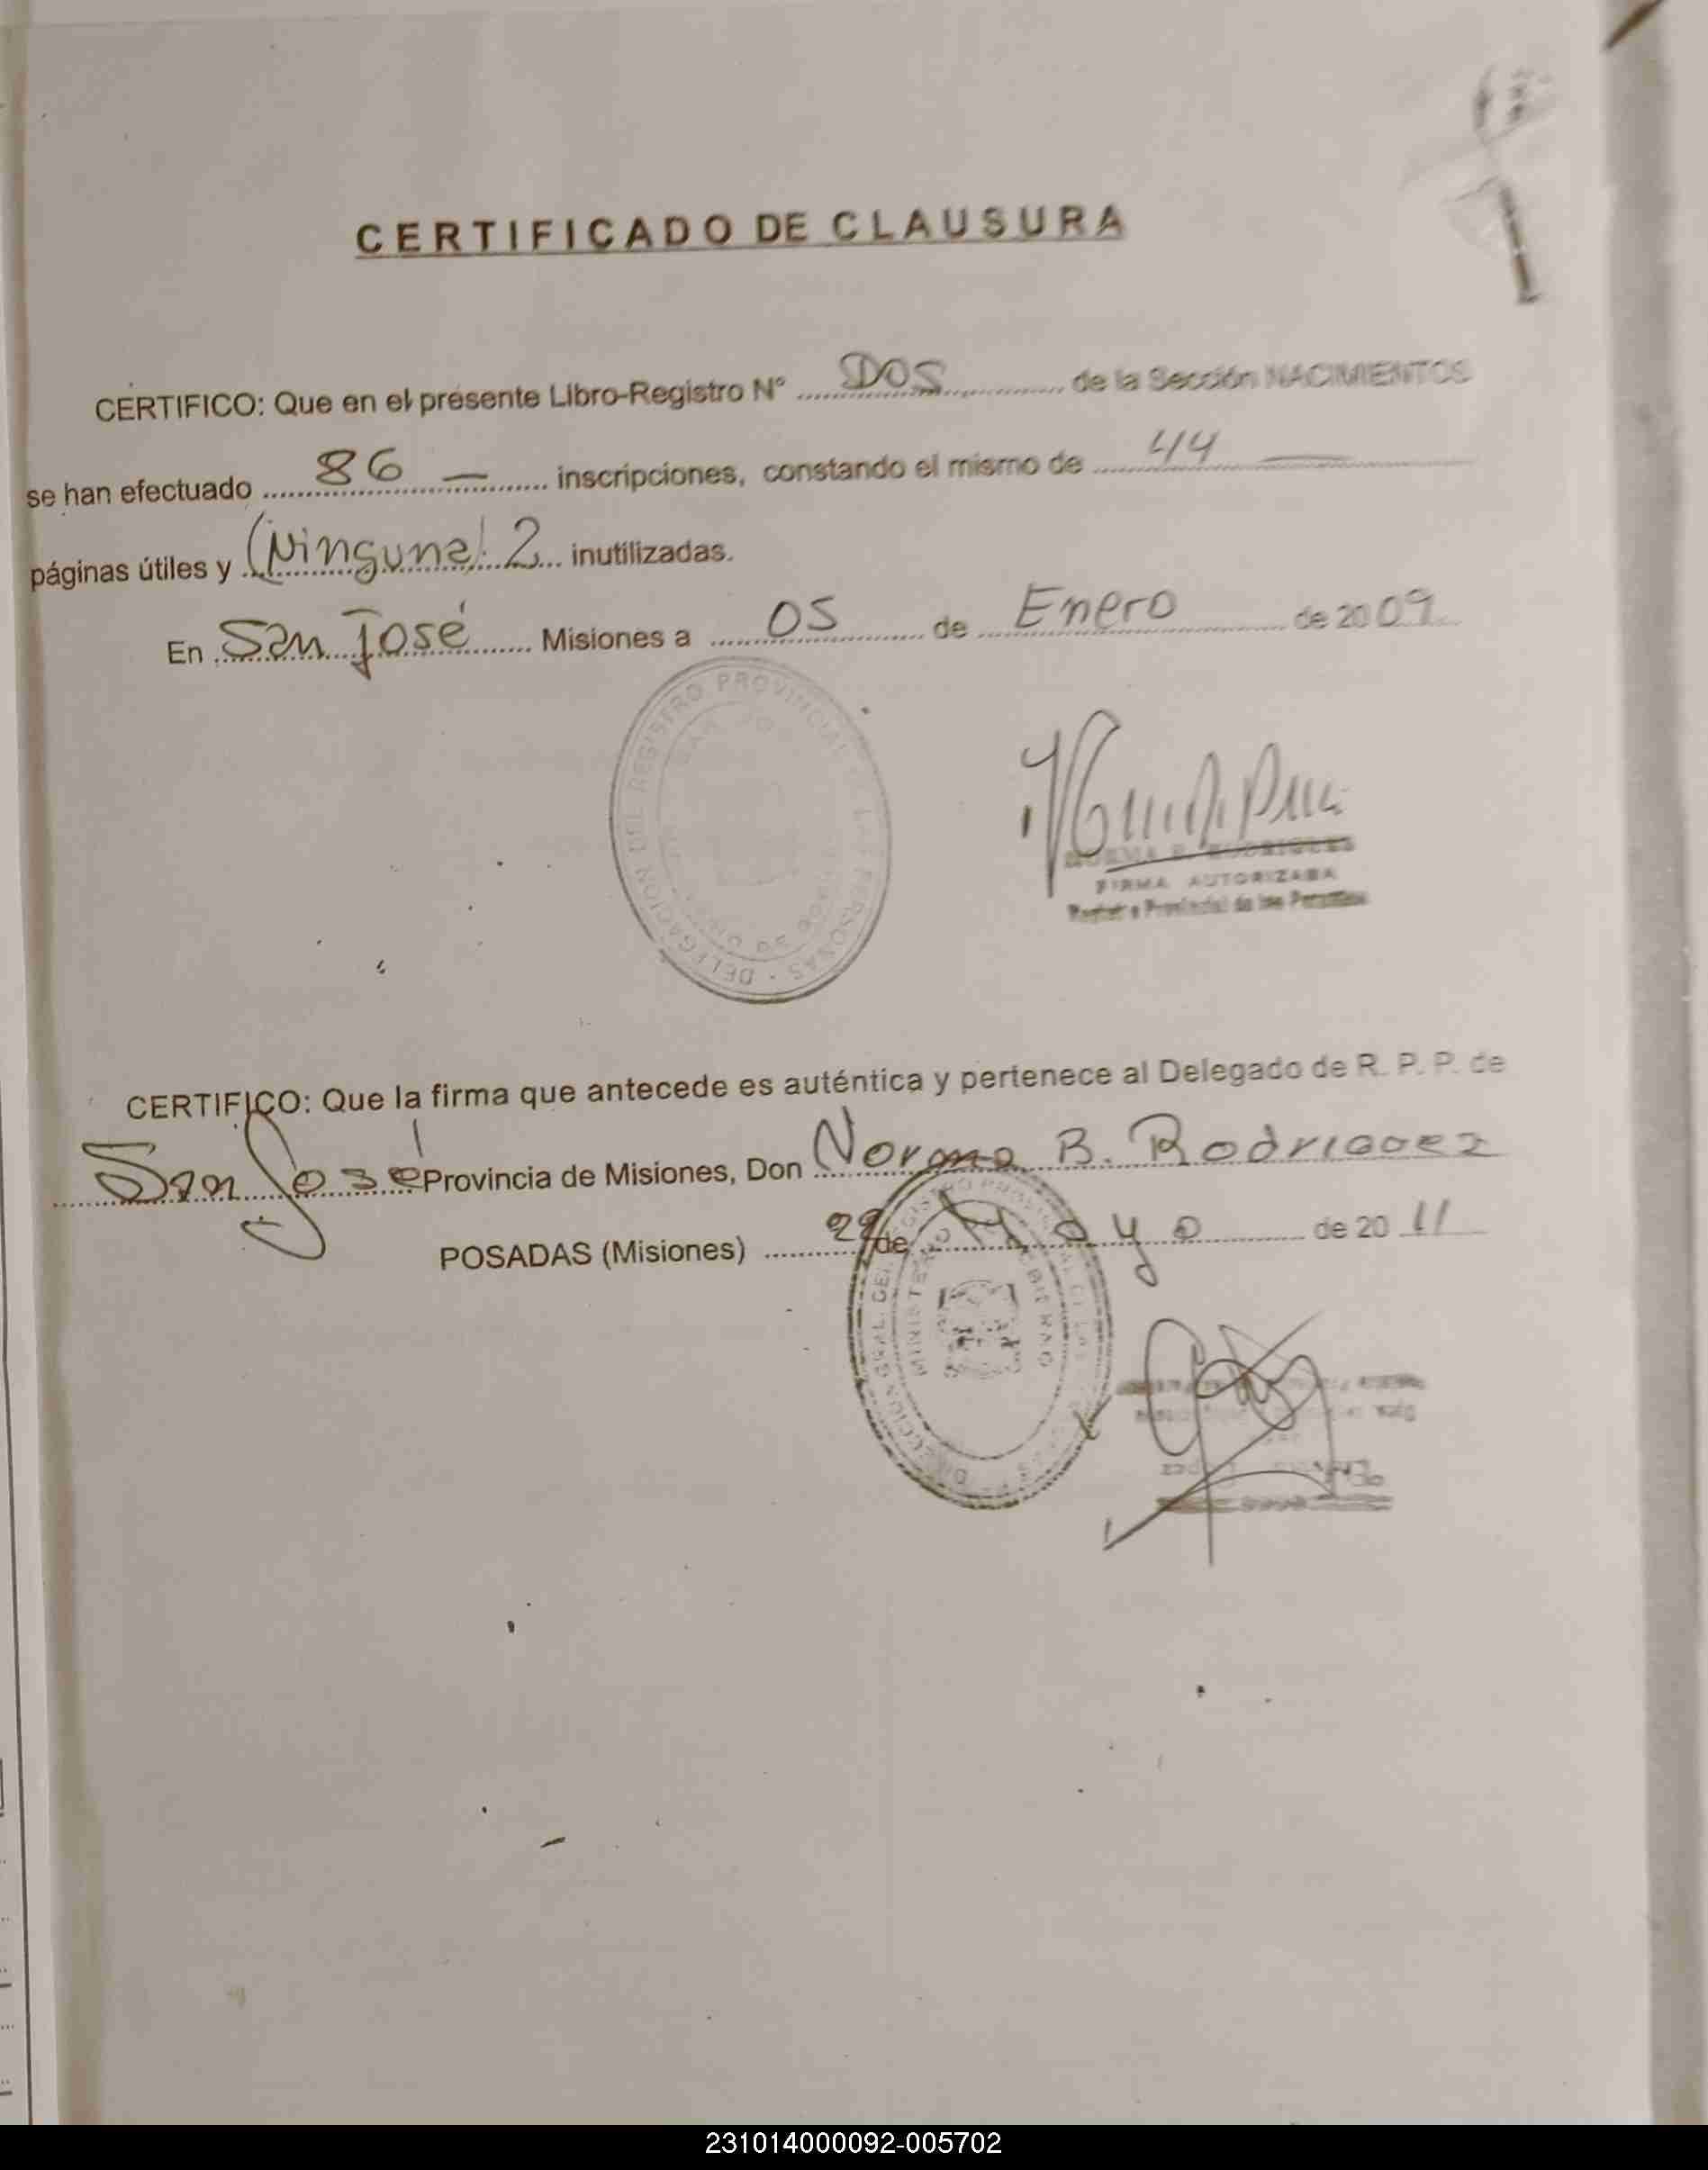 CERTIFICADO DE CLAUSURA
CERTIFICO: Que en el presente Libro-Registro N° DOS de la Sección NACIMIENTOS
se han efectuado 86 — inscripciones, constando el mismo de 44 —
páginas útiles y (Ninguna) 2 inutilizadas.
En San José Misiones a 05 de Enero de 2009
DELEGACION DEL REGISTRO PROVINCIAL DE LAS PERSONAS
NORMA B. RODRIGUEZ
FIRMA AUTORIZADA
Registro Provincial de las Personas
CERTIFICO: Que la firma que antecede es auténtica y pertenece al Delegado de R. P. P. de
San José Provincia de Misiones, Don Norma B. Rodriguez
POSADAS (Misiones) 29 de Mayo de 2011
DIRECCION GRAL. DEL REGISTRO PROVINCIAL DE LAS PERSONAS
MINISTERIO DE GOBIERNO
231014000092-005702